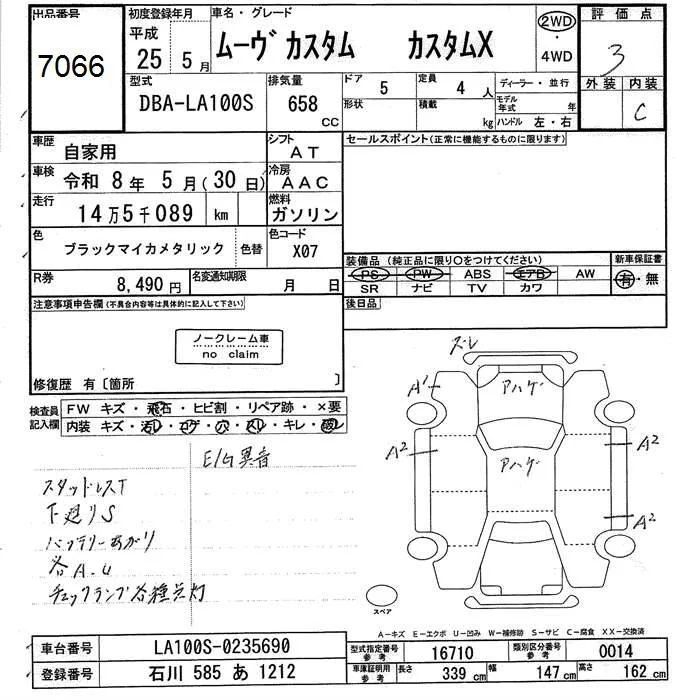 出品番号
7066
初度登録年月
平成
25 5月
車名・グレード
ムーヴ カスタム カスタムX
2WD
・
4WD
評価点
3
外装 内装
C
型式
DBA-LA100S
排気量
658
CC
ドア
5
定員
4 人
形状
積載
kg
ディーラー・並行
モデル年式 年
ハンドル 左・右
車歴
自家用
シフト
AT
車検
令和 8年 5月(30日)
冷房
AAC
走行
14万5千089 km
燃料
ガソリン
色
ブラックマイカメタリック
色替
色コード
X07
R券
8,490円
名変通知期限
月 日
セールスポイント(正常に機能するものに限ります)
装備品(純正品に限り○をつけてください)
PS PW ABS エアB AW
SR ナビ TV カワ
新車保証書
有・無
後日品
注意事項申告欄(不具合内容等は具体的に記入して下さい)
ノークレーム車
no claim
修復歴 有〔箇所 〕
検査員
記入欄
FW キズ・飛石・ヒビ割・リペア跡・×要
内装 キズ・汚レ・コゲ・穴・スレ・キレ・破レ
E/G異音
スタッドレスT
下廻りS
バッテリーあがり
各A.U
チェックランプ各種点灯
ズレ
A1
アハゲ
アハゲ
A2
A2
A2
スペア
A-キズ E-エクボ U-凹み W-補修跡 S-サビ C-腐食 XX-交換済
車台番号
LA100S-0235690
登録番号
石川 585 あ 1212
型式指定番号
参考
16710
類別区分番号
参考
0014
車庫証明用
参考
長さ
339 cm
幅
147 cm
高さ
162 cm